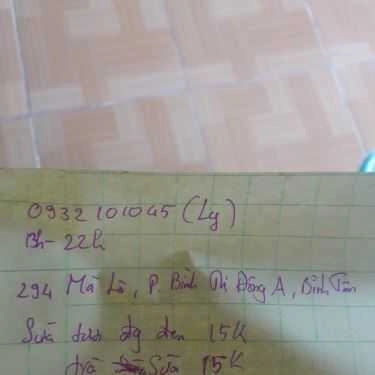 0932101045 (Ly)
13h - 22h
294 Mã Lò, P. Bình Trị Đông A, Bình Tân
Sữa tươi đg đen 15K
trà Sữa 15K